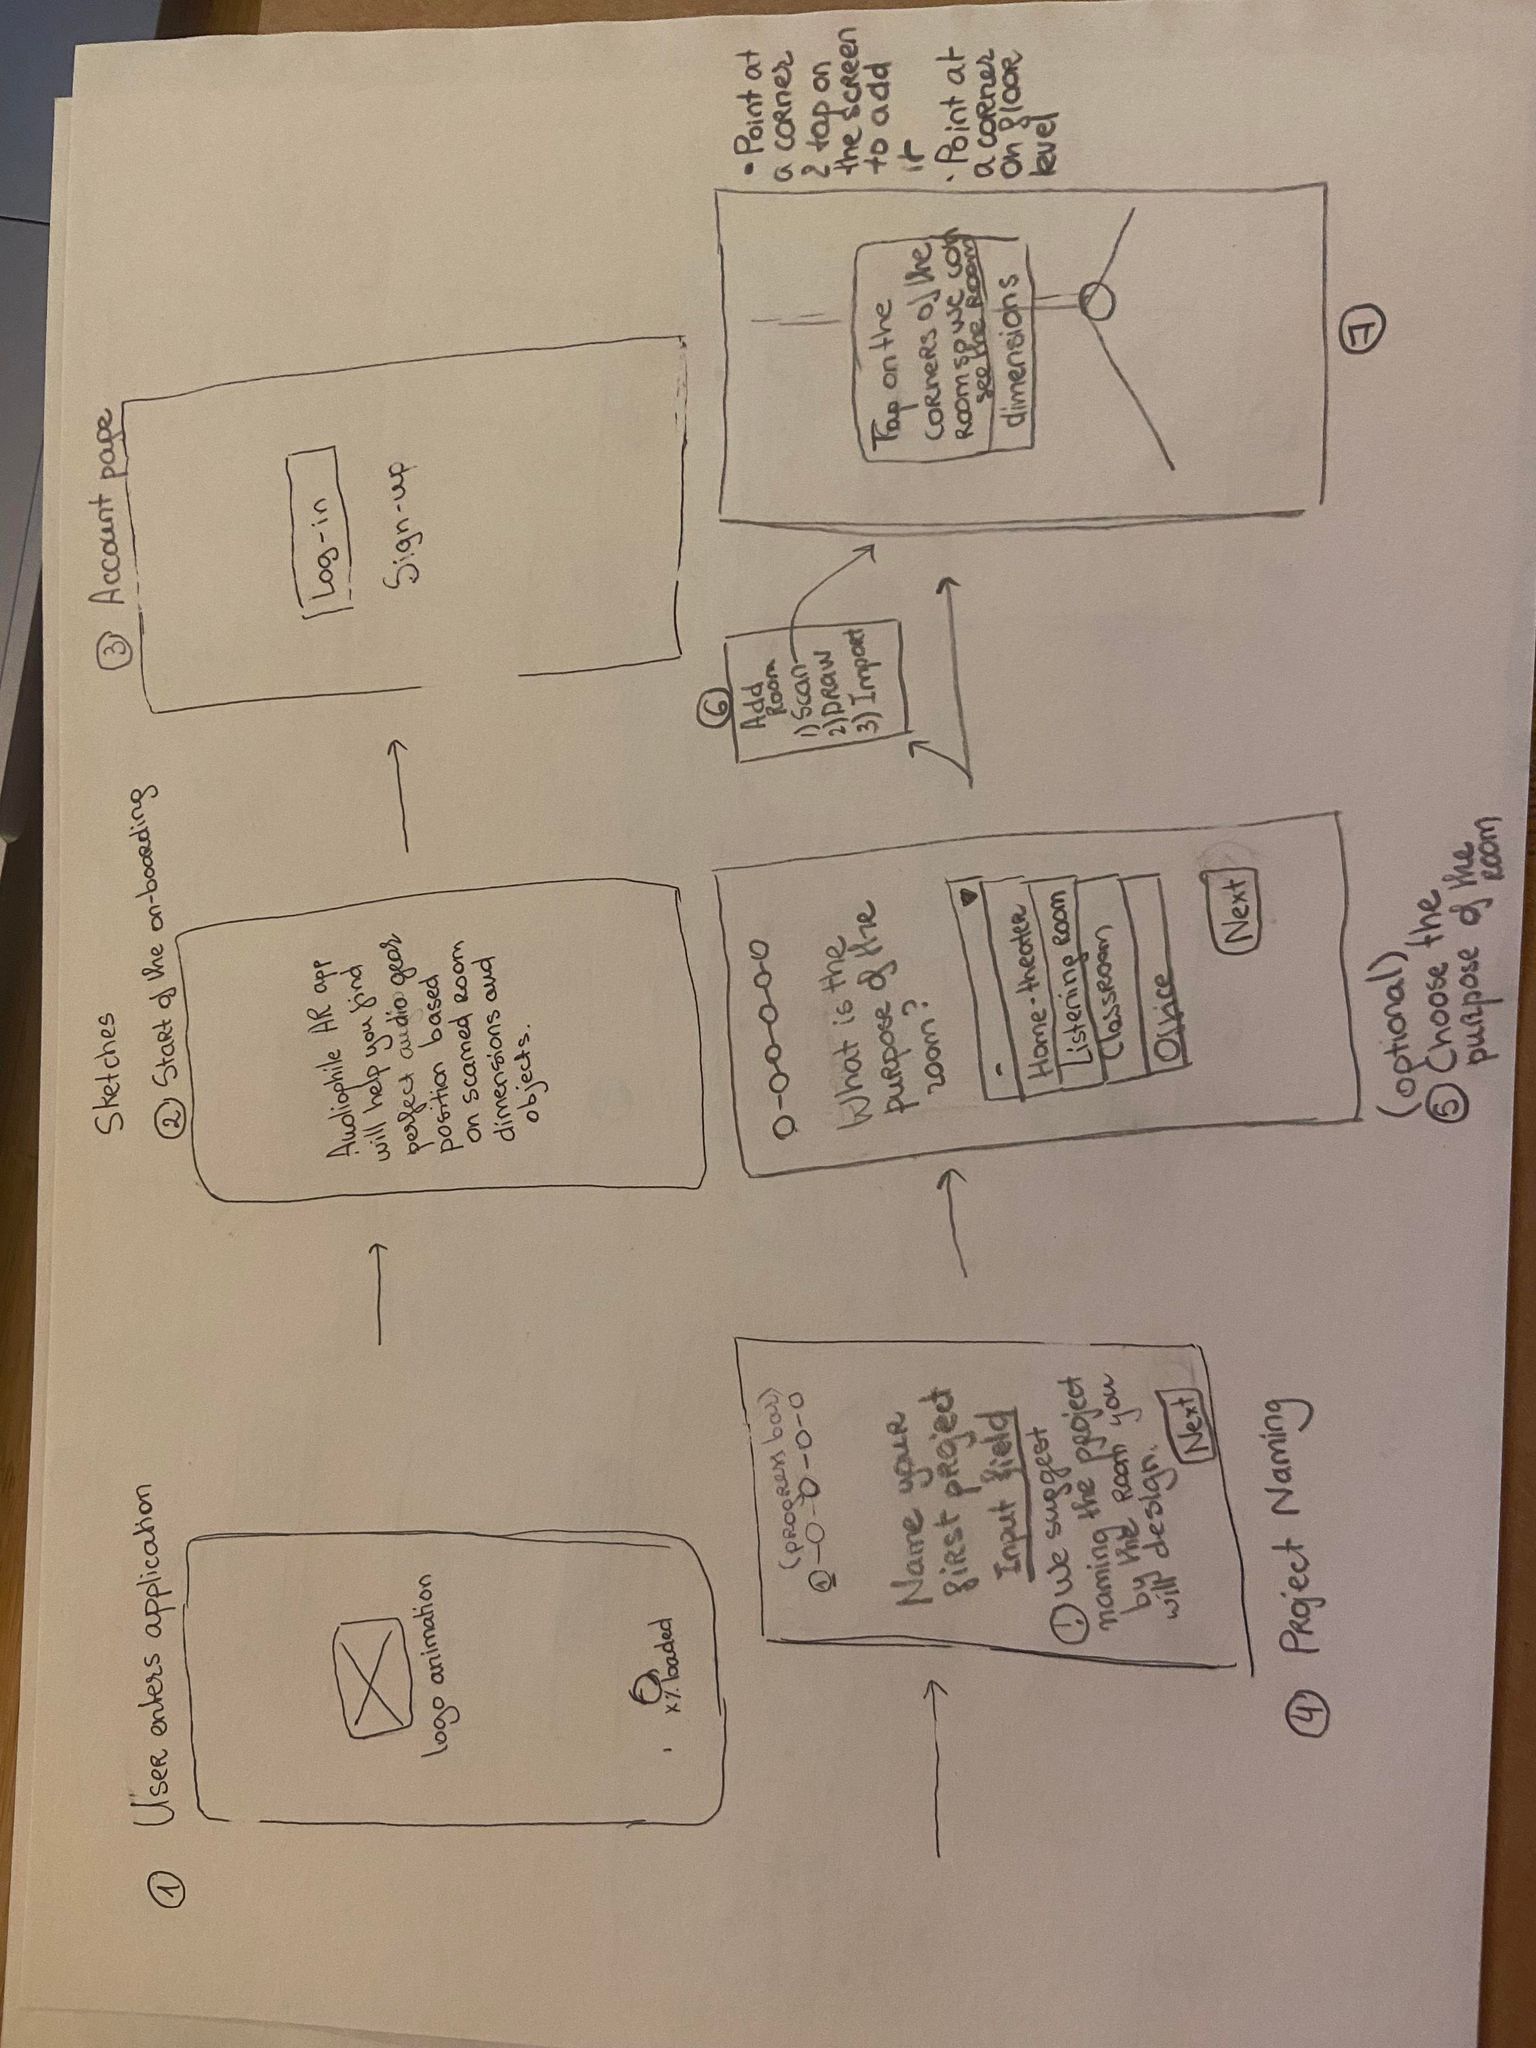 Sketches
① User enters application
logo animation
x% loaded
② Start of the on-boarding
Audiophile AR app
will help you find
perfect audio gear
position based
on scanned room
dimensions and
objects.
③ Account page
Log-in
Sign-up
(progress bar)
1
Name your
first project
Input field
! We suggest
naming the project
by the room you
will design.
Next
④ Project Naming
What is the
purpose of the
room?
-
Home-theater
Listening Room
Classroom
Office
Next
(optional)
⑤ Choose the
purpose of the
room
⑥
Add
Room
1) Scan
2) Draw
3) Import
Tap on the
corners of the
room so we can
see the room
dimensions
⑦
• Point at
a corner
& tap on
the screen
to add
it
• Point at
a corner
on floor
level